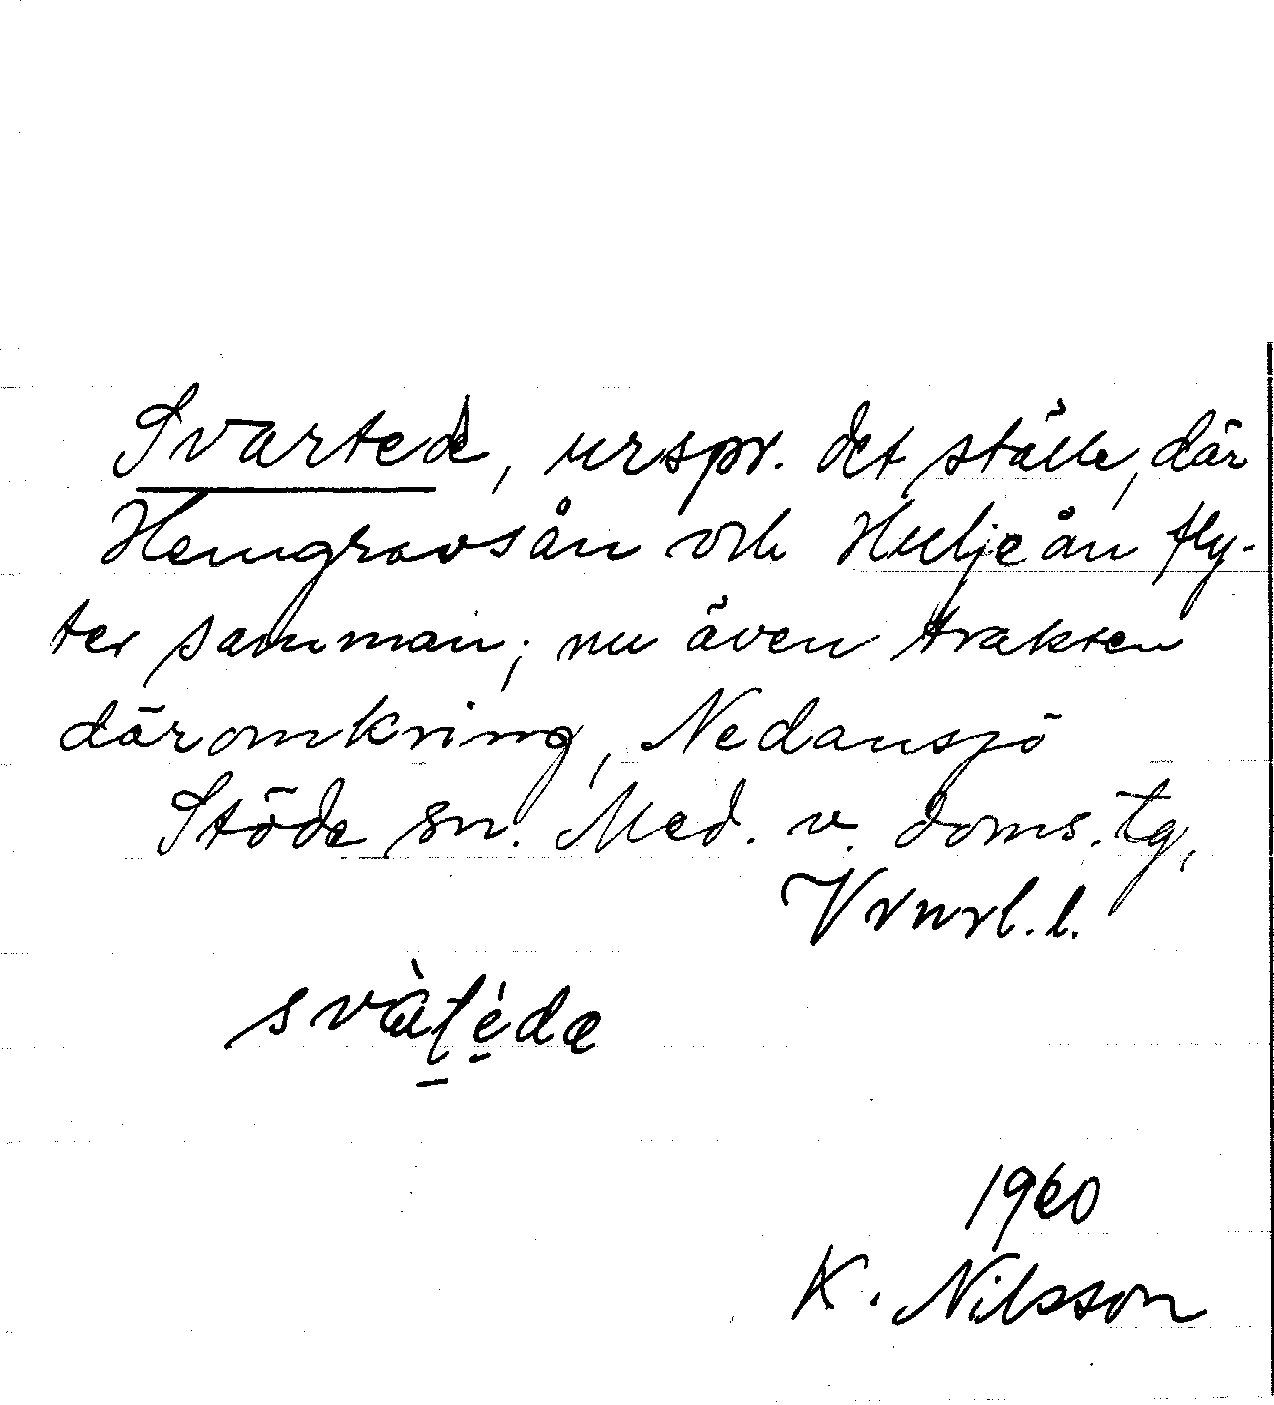 Svarted, urspr. det ställe, där
Hemgravsån och Huljeån fly-
ter samman; nu även trakten
däromkring, Nedansjö
Stöde sn. Med. v. doms. tg,
Vrnrl. l.
svàt̠é̠da
1960
K. Nilsson